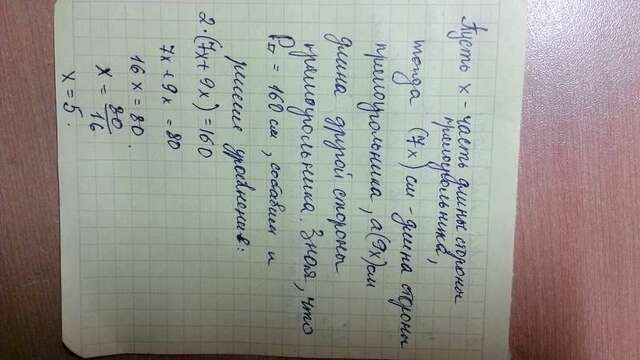 Пусть х - часть длины стороны
прямоугольника,
тогда (7х) см - длина стороны
прямоугольника, а (9х) см
длина другой стороны
прямоугольника. Зная, что
P▭ = 160 см, составим и
решим уравнение:
2·(7х + 9х) = 160
7х + 9х = 80
16х = 80.
х = 80/16
х = 5.